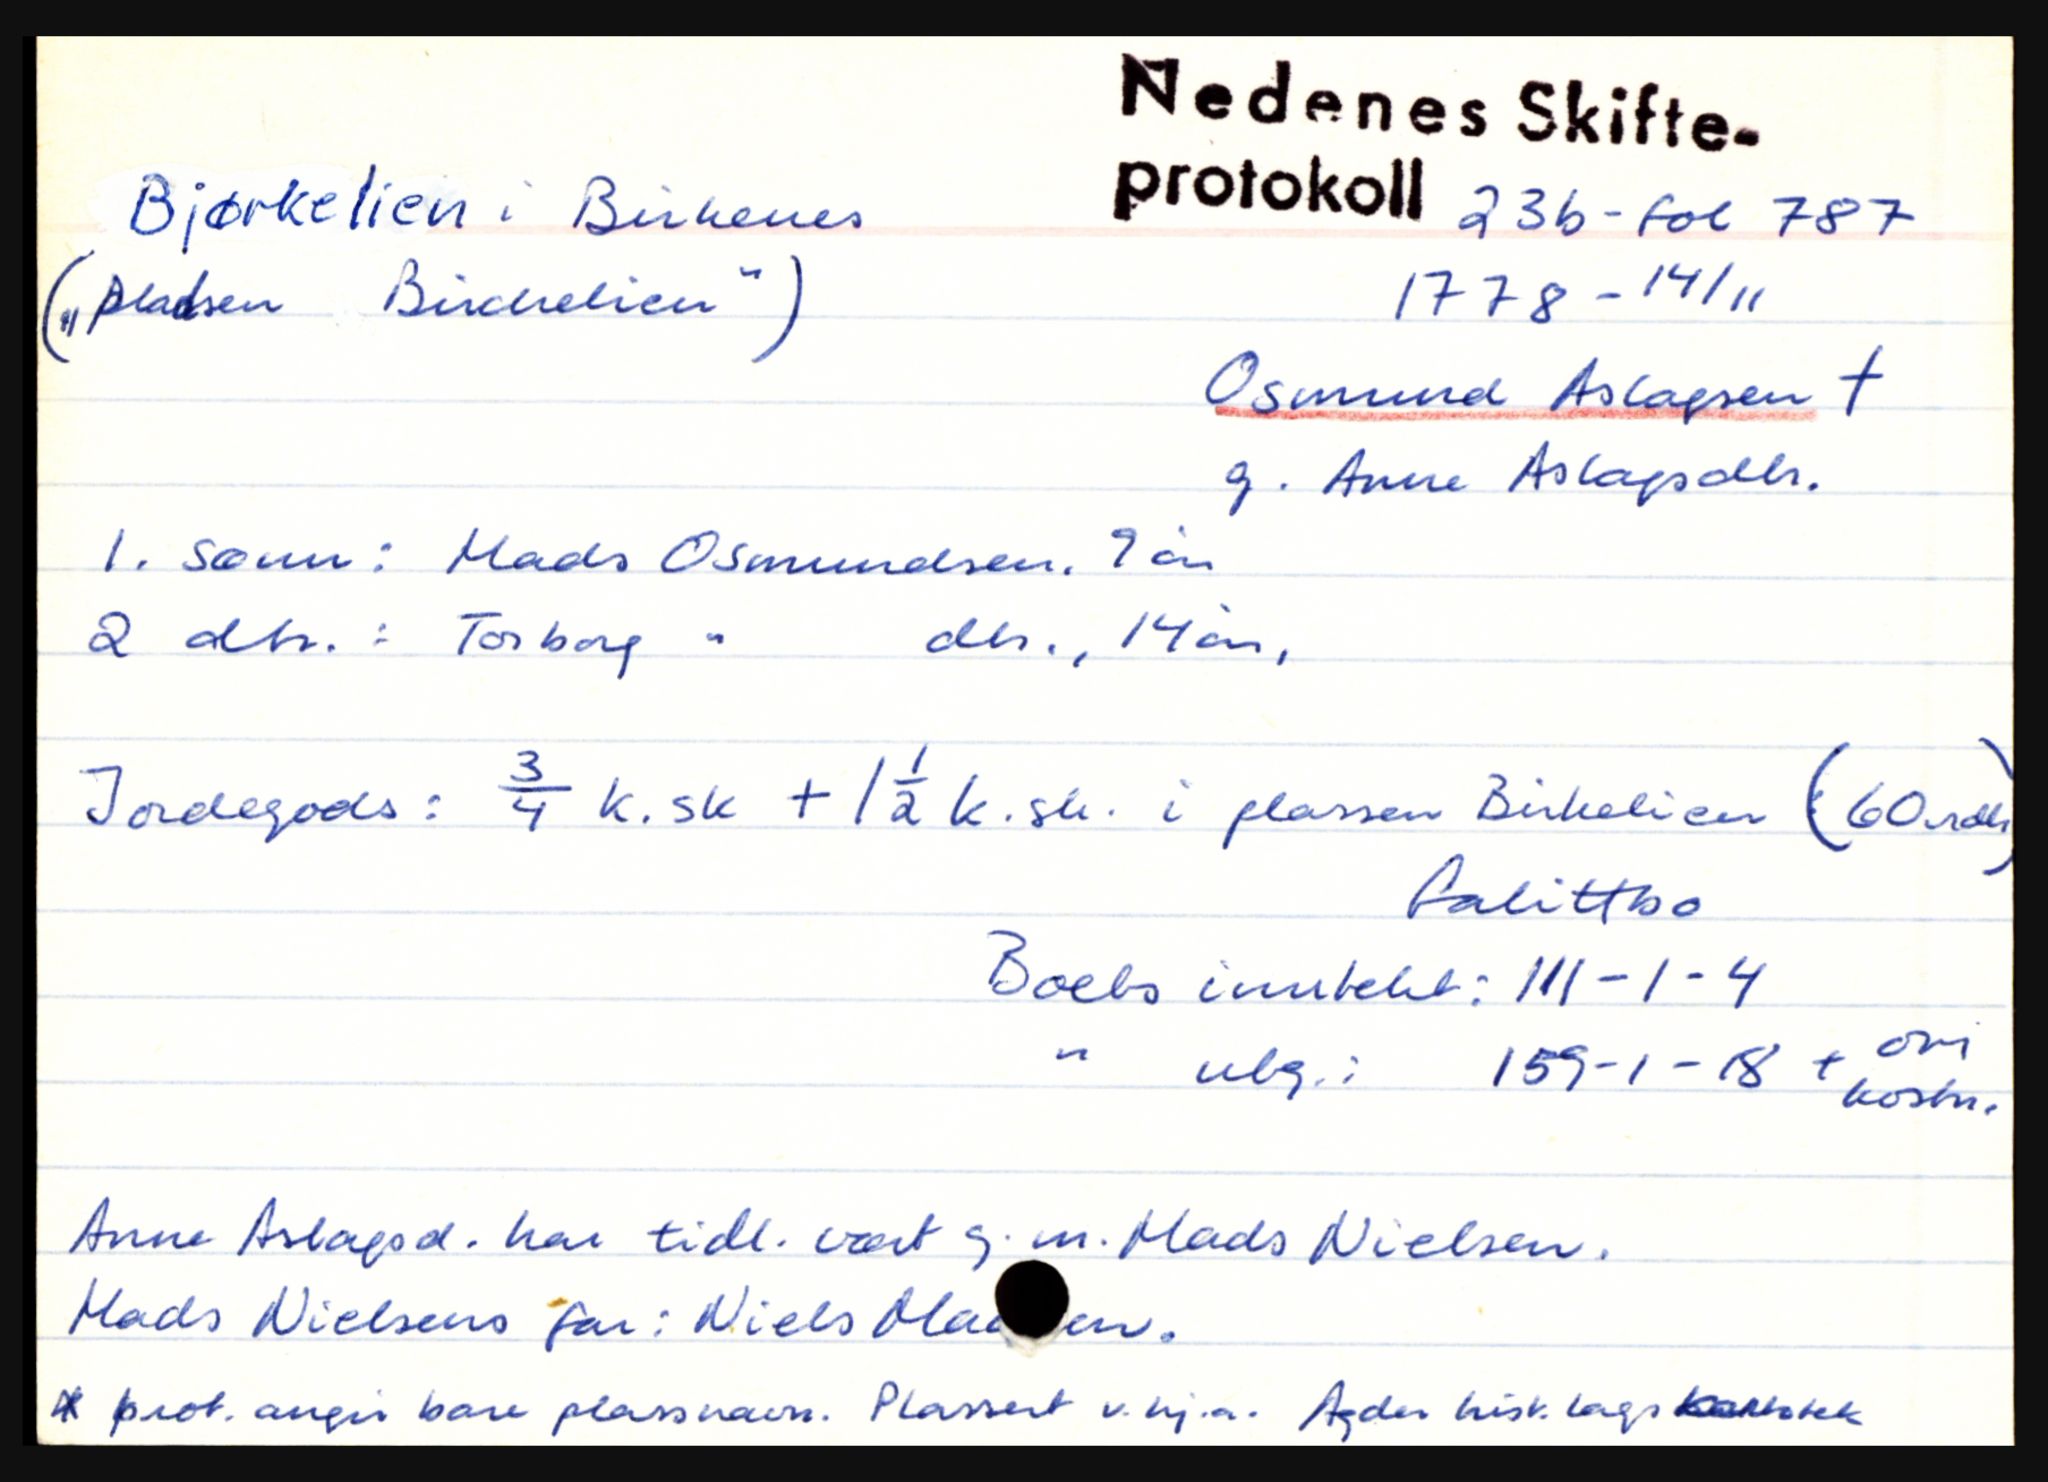 Nedenes Skifte-
protokoll 23b - fol 787
Bjørkelien i Birkenes
("pladsen Birchelien")
1778 - 14/11
Osmund Aslagsen †
g. Anne Aslagsdtr.
1. sønn: Mads Osmundsen. 9 år
2 dtr. : Torborg " dtr., 14 år,
Jordegods: 3/4 k.sk + 1 1/2 k.sk. i plassen Birkelien (60 rdlr)
Falittbo
Boets inntekt: 111-1-4
" utg.: 159-1-18 + omkostn.
Anne Aslagsd. har tidl. vært g. m. Mads Nielsen.
Mads Nielsens far: Niels Madsen.
* prot. angir bare plassnavn. Plassert v.hj.a. Agder hist. lags kartotek